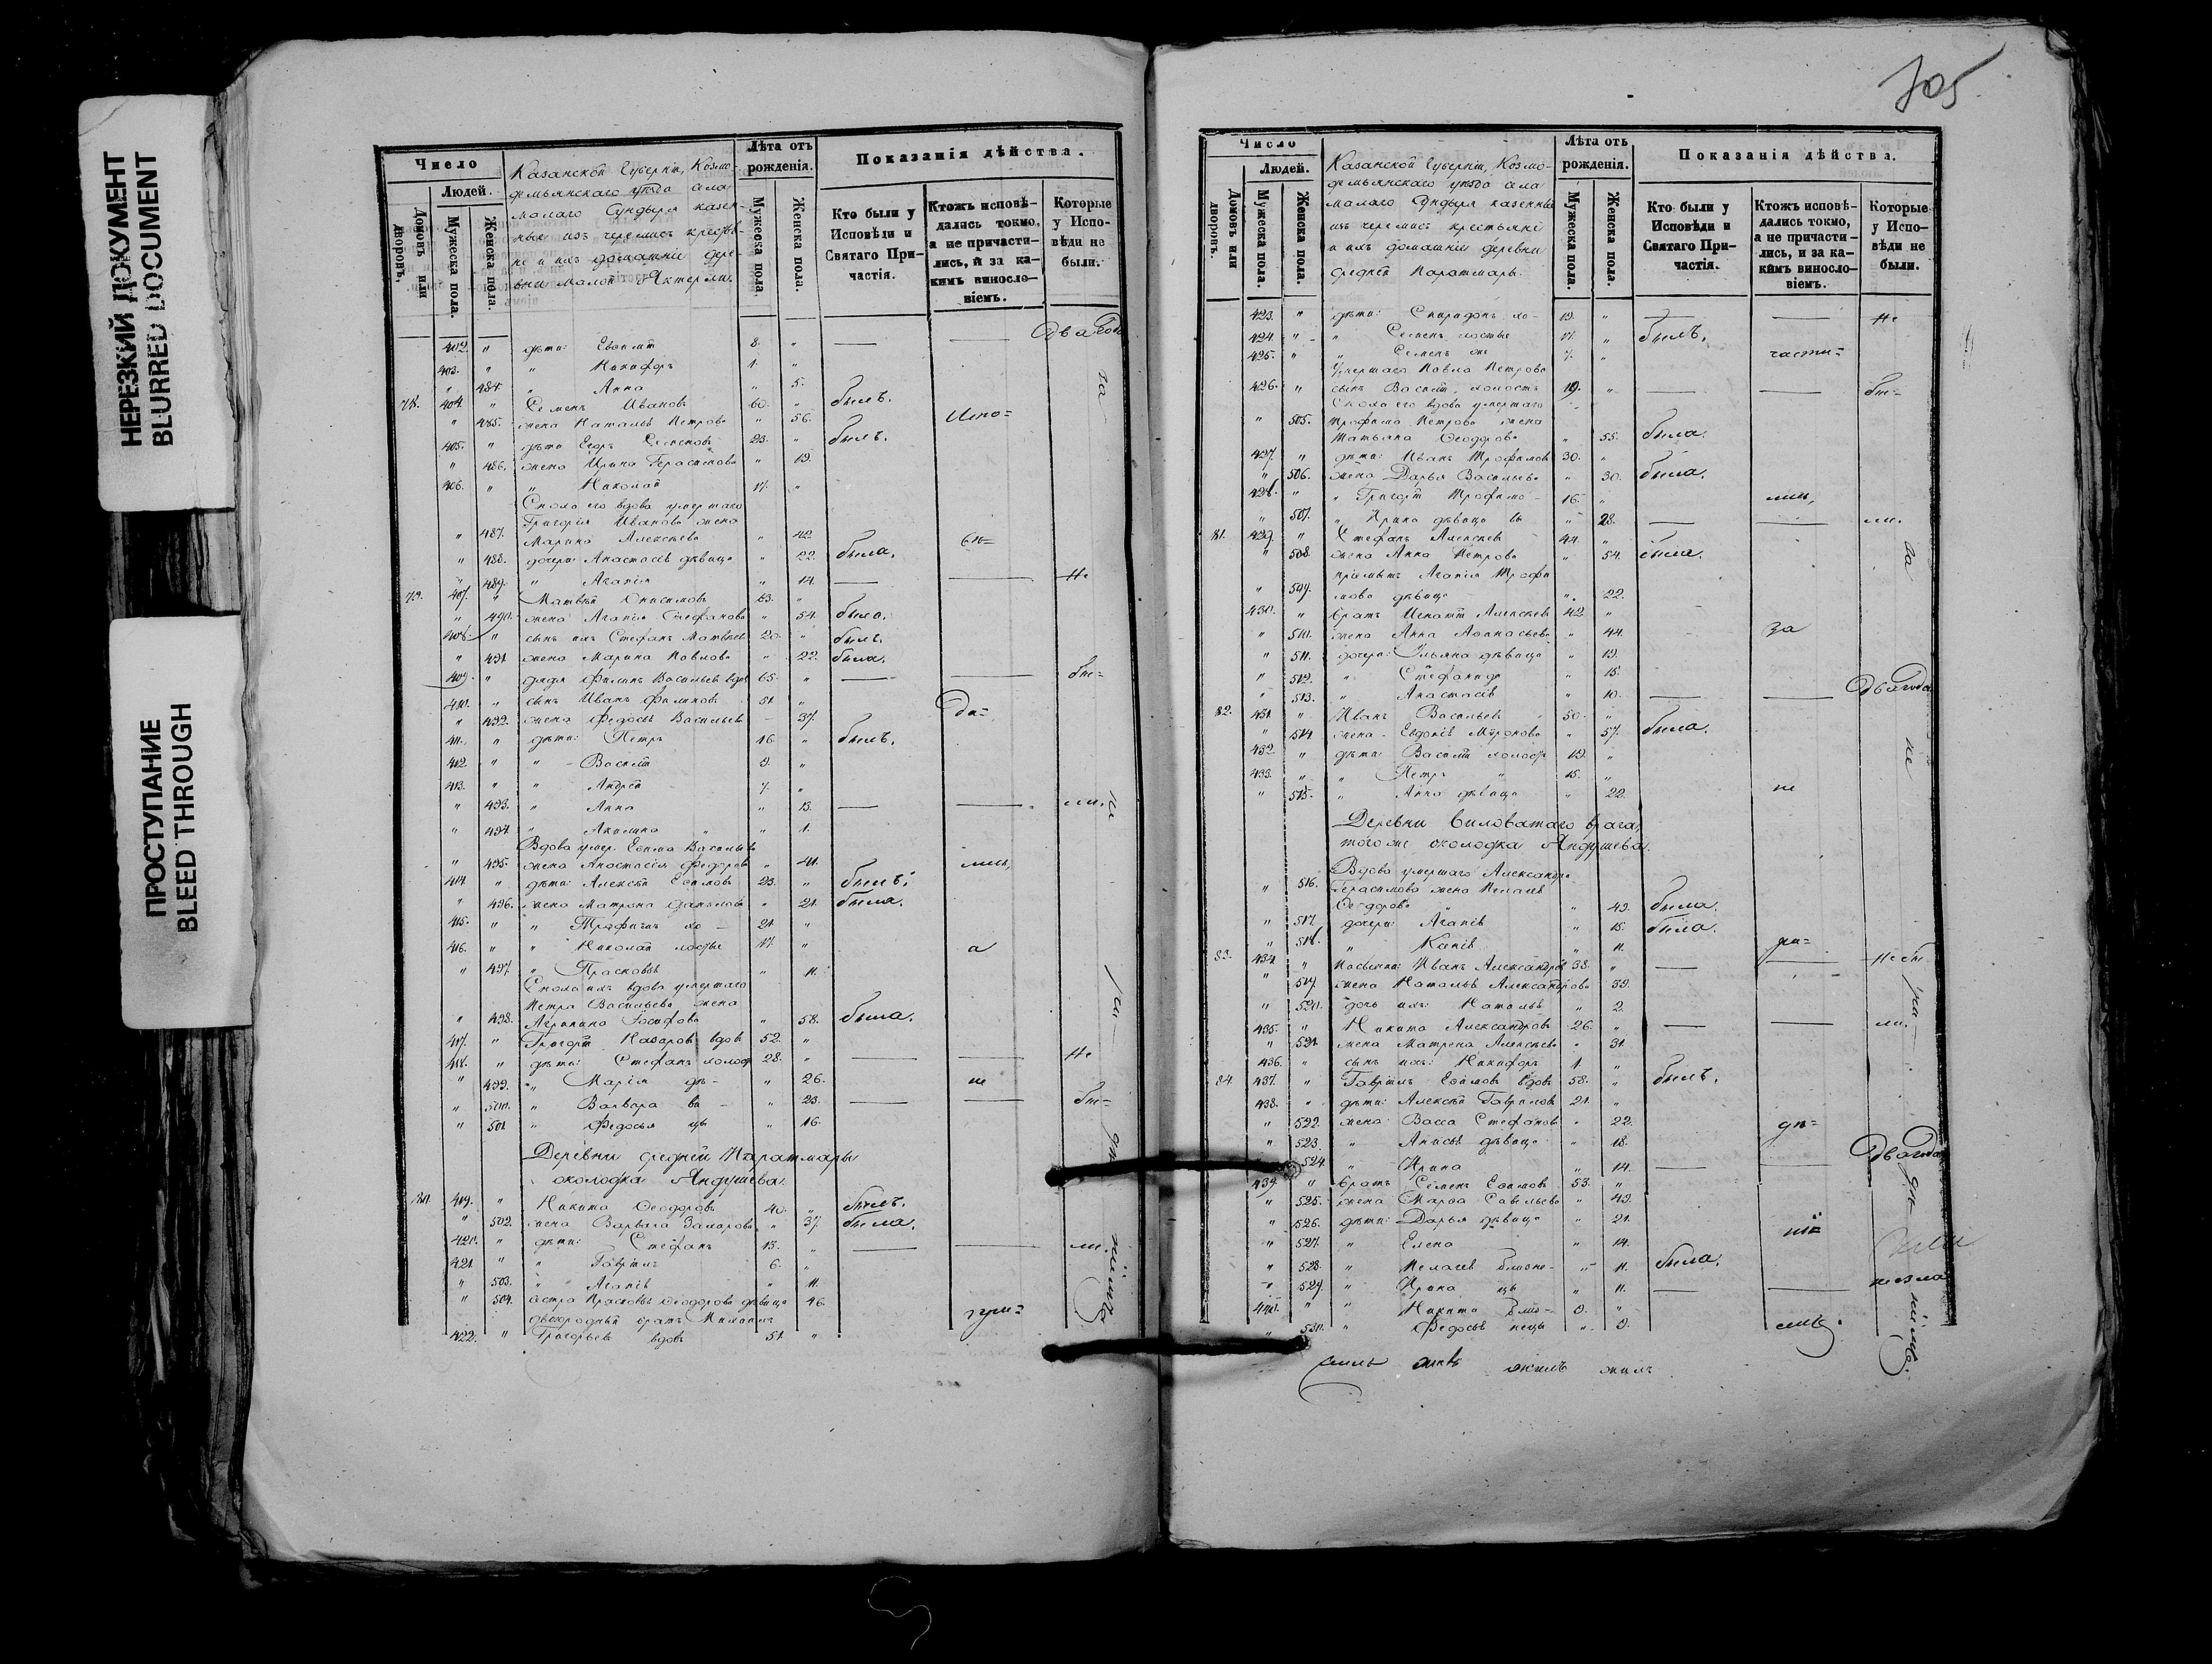 НЕРЕЗКИЙ ДОКУМЕНТ
BLURRED DOCUMENT
ПРОСТУПАНИЕ
BLEED THROUGH
Число
Людей.
Домовъ или дворовъ.
Мужеска пола.
Женска пола.
Казанской Губерніи, Козмо-
демьянскаго уѣзда села
малаго Сундыря казен-
ные изъ черемисъ крестья-
не и ихъ домашніи дере-
вни малой Актерли.
Лѣта отъ рожденія.
Мужеска пола.
Женска пола.
Показанія дѣйства.
Кто были у Исповѣди и Святаго При-частія.
Ктожъ исповѣ-дались токмо, а не причасти-лись, и за ка-кимъ винослo-віемъ.
Которые у Испо-вѣди не были.
Два года
402. " дѣти: 8. "
403. " " Никифоръ 1. "
" 484. " Анна " 5.
78. 404. " Семенъ Ивановъ 60. " былъ.
" 485. жена Наталья Петрова " 56. Испо=
405. " дѣти Егоръ Семеновъ 23. " былъ.
" 486. жена Ирина Герасимова " 19.
406. " " Николай 17. "
Снохa его вдова умершаго
Григорія Иванова жена
" 487. Марина Алексѣева " 42
" 488. дочери: Анастасія дѣвица " 22. была.
" 489. " Агапія " 14. — — Не
79. 407. " Матвѣй Онисимовъ 63. "
" 490. жена Агапія Стефанова " 54. была.
408. " сынъ ихъ Стефанъ Матвѣевъ 20. " былъ.
" 491. жена Марина Павлова " 22. была.
409. " дядя Филипъ Васильевъ вдовъ 65. " — — бы=
410. " сынъ Иванъ Филиповъ 51. "
" 492. жена Федосья Васильева - 37.
411. " дѣти: Петръ 16. " былъ.
412. " " Василій 9. "
413. " " Андрей 7. "
" 493. " Анна " 13. — — ли.
" 494. " Акилина " 1.
Вдова умер. Ефима Васильева
" 495. жена Анастасія Федорова " 41. лись,
414. " дѣти: Алексѣй Ефимовъ 23. " былъ.
" 496. жена Матрона Данилова " 21. была.
415. " " Трофимъ хо- 21. "
416. " " Николай лостые 17. " а
" 497. " Прасковья " 11.
Сноха ихъ вдова умершаго
Петра Васильева жена
" 498. Агрипина Іосифова " 58. была.
417. " Григорій Назаровъ вдовъ 52. "
418. " дѣти: Стефанъ холост 28. " — — Не
" 499. " Марія дѣ- " 26. не
" 500. " Варвара ви- " 23. — — бы=
" 501. " Федосья цы " 16.
Деревни средней Паратмары
околодка Яндушева.
80. 419. " Никита Ѳеодоровъ 40. " былъ.
" 502. жена Варвара Захарова " 37. была.
420. " дѣти: Стефанъ 13. " — — ли.
421. " " Гавріилъ 6. "
" 503. " Агапія " 11.
" 504. сестра Прасковья Ѳеодорова дѣвица 46. при=
двоюродный братъ Михаилъ
422. " Григорьевъ вдовъ 51. "
705
Число
Людей.
Домовъ или дворовъ.
Мужеска пола.
Женска пола.
Казанской Губерніи, Козмо-
демьянскаго уѣзда села
малаго Сундыря казенніи
изъ черемисъ крестьяне
и ихъ домашніи деревни
средней Паратмары.
Лѣта отъ рожденія.
Мужеска пола.
Женска пола.
Показанія дѣйства.
Кто были у Исповѣди и Святаго При-частія.
Ктожъ исповѣ-дались токмо, а не причасти-лись, и за ка-кимъ винослo-віемъ.
Которые у Испо-вѣди не были.
423. " дѣти: Спиридонъ хо- 19. " — — Не
424. " " Семенъ лостые 17. " былъ.
425. " " Семенъ же 7. " части=
Умершаго Павла Петрова
426. " сынъ Василій холостъ 19. " — — бы=
Сноха его вдова умершаго
" 505. Трофима Петрова жена
Татьяна Ѳеодорова " 55. была.
427. " дѣти: Иванъ Трофимовъ 30. "
" 506. жена Дарья Васильева " 30. была.
428. " " Григорій Трофимо- 16. " лись,
" 507. " Ирина дѣвица въ " 28. — — ли.
81. 429. " Стефанъ Алексѣевъ 44. "
" 508. жена Анна Петрова " 54. была.
пріемышъ Агапія Трофи
" 509. мова дѣвица " 22.
430. " братъ Игнатій Алексѣевъ 42 "
" 510. жена Анна Афанасьева " 44. за
" 511. дочери: Ульяна дѣвица " 19.
" 512. " Стефанида " 15.
" 513. " Анастасія " 10. — — Два года
82. 431. " Иванъ Васильевъ 50. "
" 514. жена Евдокія Миронова " 57. была.
432. " дѣти: Василій холост 19. "
433. " " Петръ 15. "
" 515. " Анна дѣвица " 22. не
Деревни Виловатаго врага,
тогоже околодка Яндушева.
Вдова умершаго Александра
" 516. Герасимова жена Пелагея
Ѳеодорова " 49. была.
" 517. дочери: Агапія " 15. была.
" 518. " Капія " 11. ра=
83. 434. " Иванъ Александровъ 38. " — — Не бы
" 519. жена Наталья Александрова 39.
" 520. дочь ихъ: Наталья " 2.
435. " Никита Александровъ 26. " — — ли.
" 521. жена Матрена Алексѣева " 31.
436. " сынъ ихъ: Никифоръ 1. "
84. 437. " Гавріилъ Ефимовъ вдовъ 58. " былъ.
438. " дѣти: Алексѣй Гавриловъ 21. "
" 522. жена Васса Стефанова " 22. дѣ=
" 523. " Анисья дѣвица " 18.
" 524. " Ирина " 14. — — Два года
439. " братъ Семенъ Ефимовъ 53. "
" 525. жена Марѳа Савельева " 49.
" 526. дѣти: Дарья дѣвица " 21. ні=
" 527. " Елена " 14.
" 528. " Пелагея близне- " 11. была.
" 529. " Ирина цы " 11. —
440. " " Никита близ- 9. "
" 530. " Федосья нецы " 9. емъ.